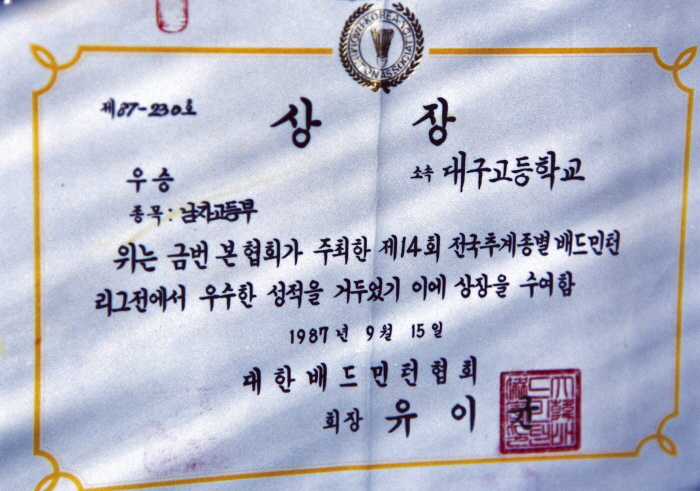 제87-230호
상 장
소속 대구고등학교
우승
종목: 남자고등부
위는 금번 본 협회가 주최한 제14회 전국추계종별 배드민턴
리그전에서 우수한 성적을 거두었기 이에 상장을 수여함
1987년 9월 15일
대한배드민턴협회
회장 유 이 균